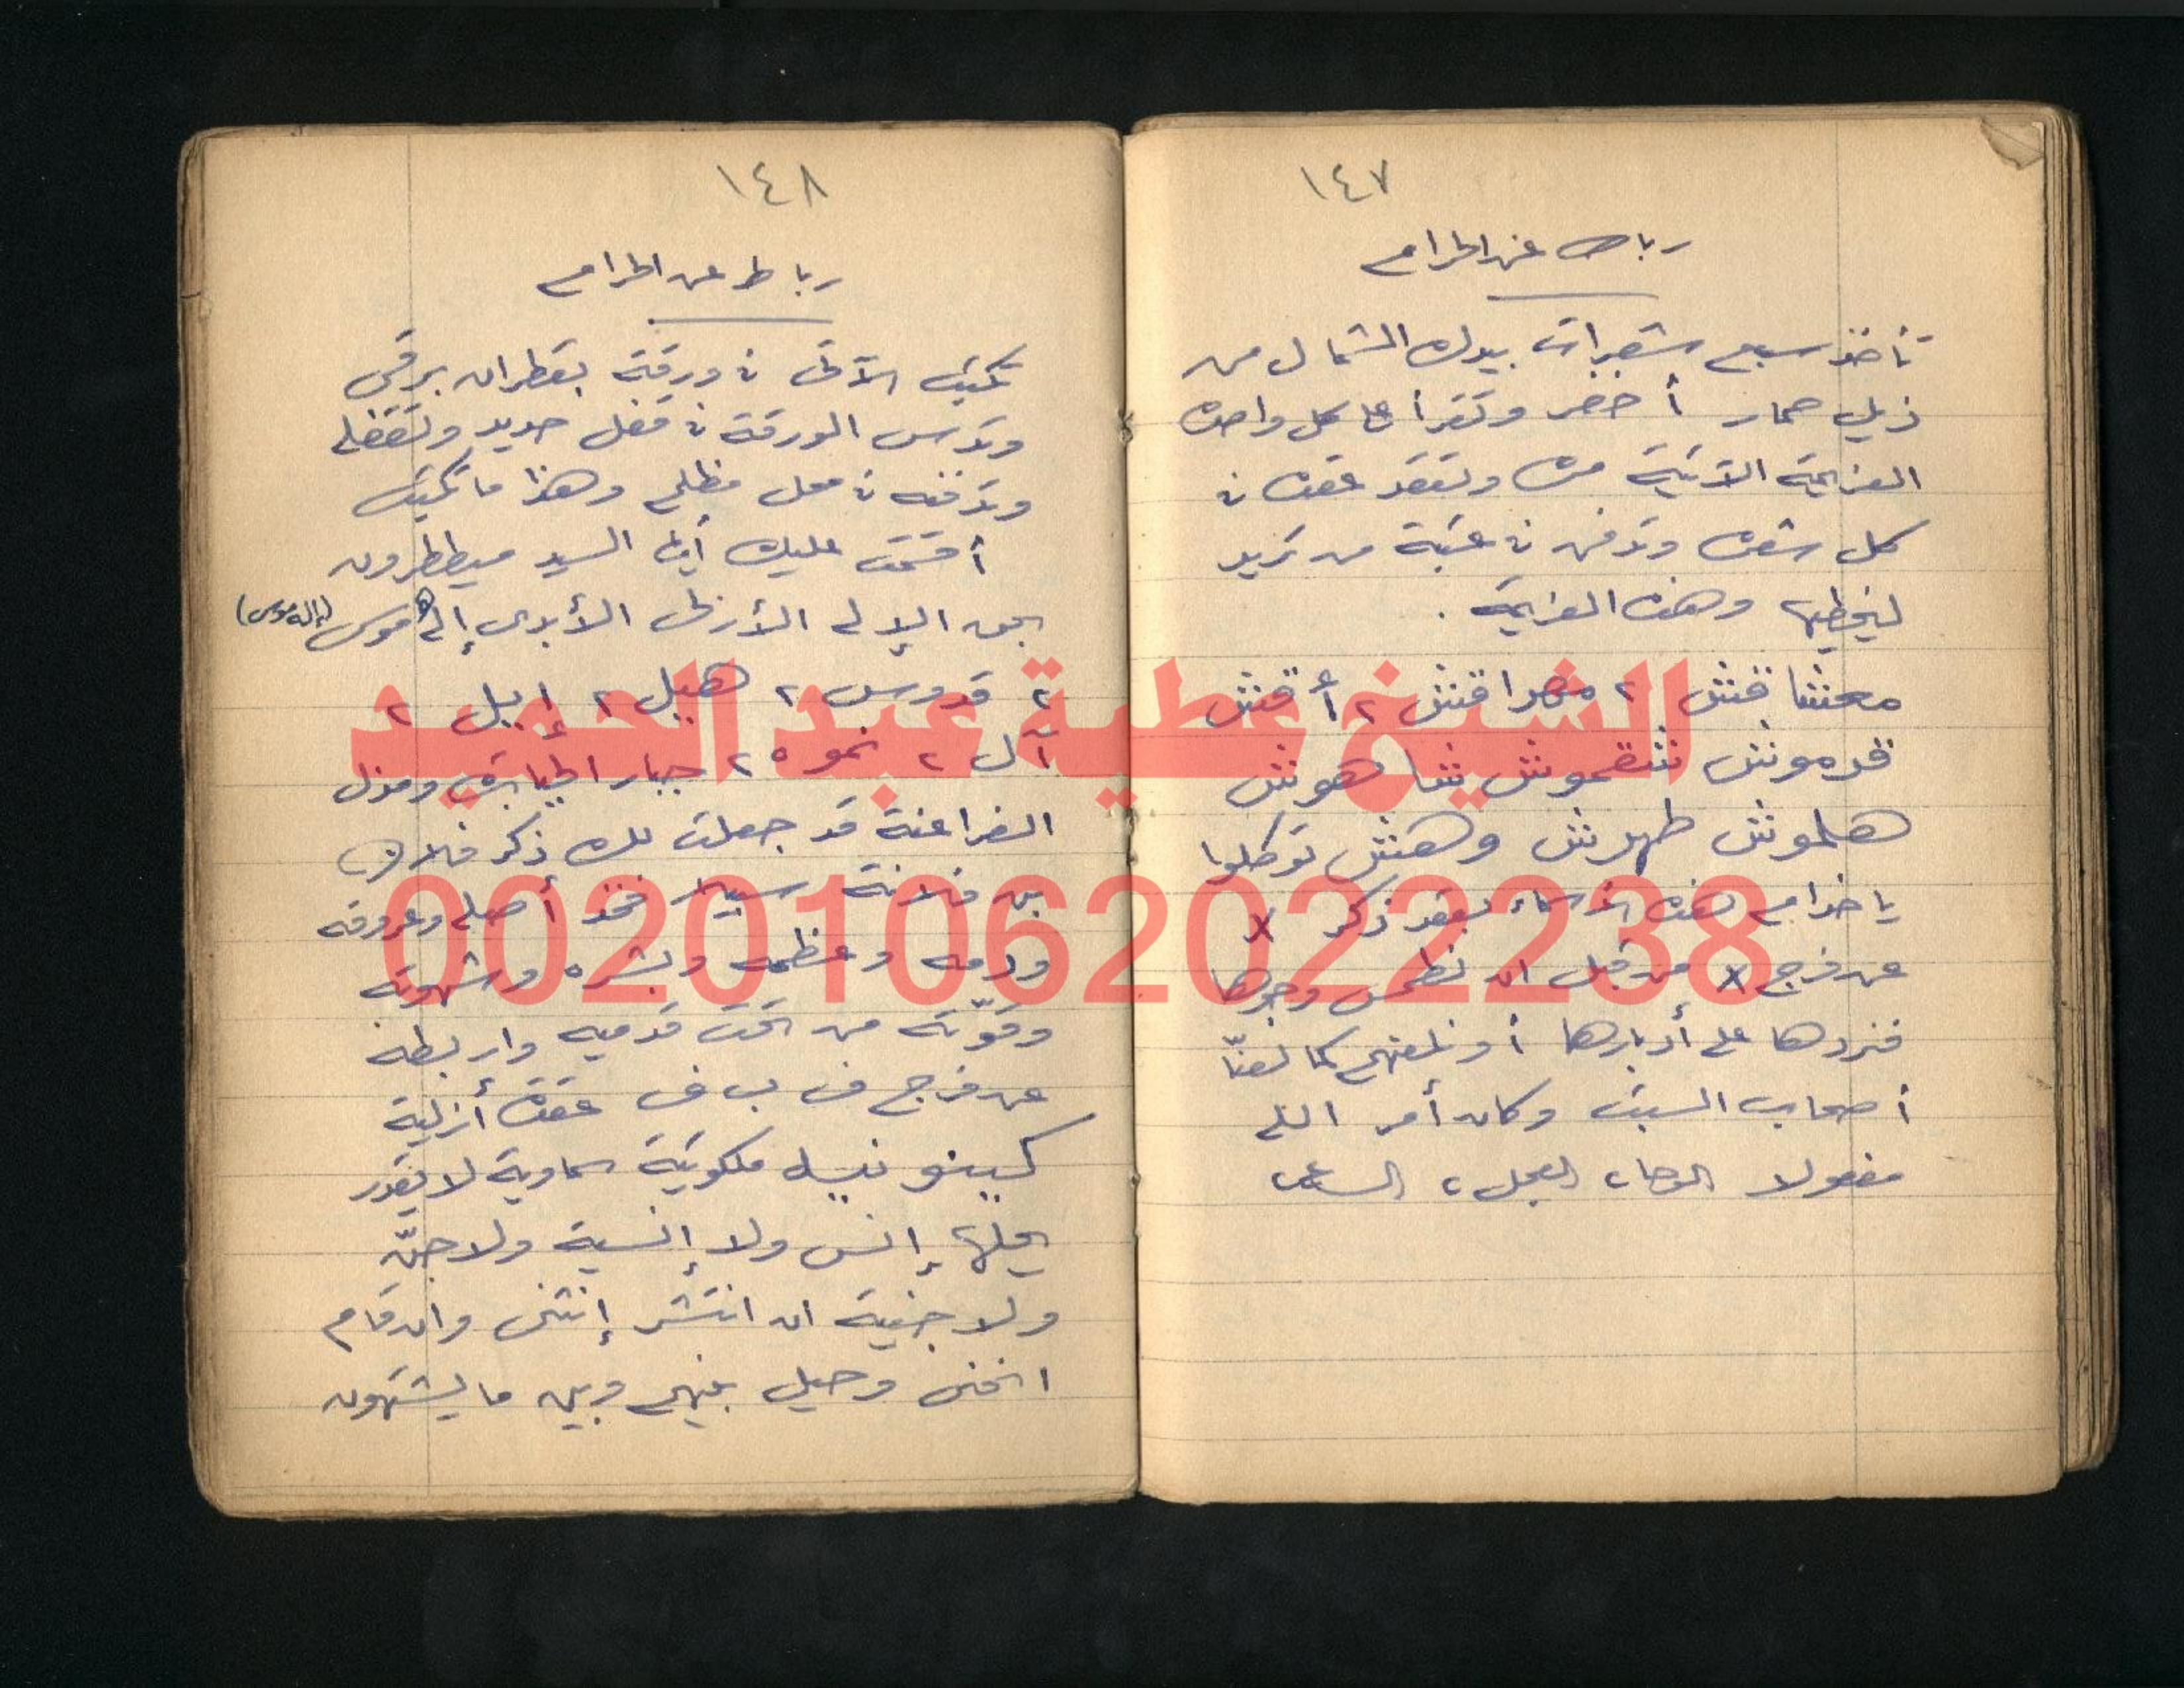 ١٤٧
رباط عن الحرام
تأخذ سبع شعرات بيدك الشمال من
ذيل حمار أخضر وتقرأ على كل واحدة
العزيمة الآتية مرة وتعقد عقدة في
كل شعرة وتدفن في عتبة من تريد
ليخطيها وهذه العزيمة .
محشاقش ٢ مهراقش ٢ أقش
قدموش شقموش شاهوش
هلموش طهرش وهش توكلوا
يا خدام هذه الأسماء بعقد ذكر x
عن فرج x من قبل ان نطمس وجوها
فنردها على أدبارها أو نلعنهم كما لعنّا
أصحاب السبت وكان أمر الله
مفعولا الوحا ٢ العجل ٢ الساعة ٢
١٤٨
رباط عن الحرام
تكتب الآتى في ورقة بقطران برقى
وتدس الورقة في قفل حديد وتقفله
وتدفنه في محل مظلم وهذا ما تكتب
أقسمت عليك أيها السيد ميططرون
بحق الإله الأزلى الأبدى إلاهموس (إله موس)
٢ قدوس ٢ هيل ٢ إيل ٢
آل ٢ نموه ٢ جبار الجبابرة ومذل
الفراعنة قد جعلت لك ذكر فلان
بن فلانة سبيلا فخذ أصله وعروقه
ودمه وعظمه وبشره وشهوته
وقوّته من تحت قدميه واربطه
عن فرج ف ب ف عقدة أزلية
كينونيه ملكوتية سماوية لا يقدر
يحلها إنس ولا إنسية ولا جنّ
ولا جنية ان انتشر إنثنى وان قام
انحنى وحيل بينهم وبين ما يشتهون
الشيخ عطية عبد الحميد
00201062022238